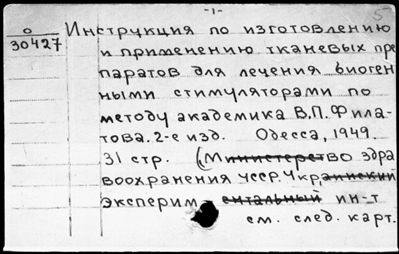 -1-
5
О
30427
Инструкция по изготовлению
и применению тканевых пре
паратов для лечения биоген
ными стимуляторами по
методу академика В.П.Фила-
това. 2-е изд. Одесса, 1949.
31 стр. (Министерство здра
воохранения УССР. Украинский
эксперим - ентальный ин-т
см. след. карт.